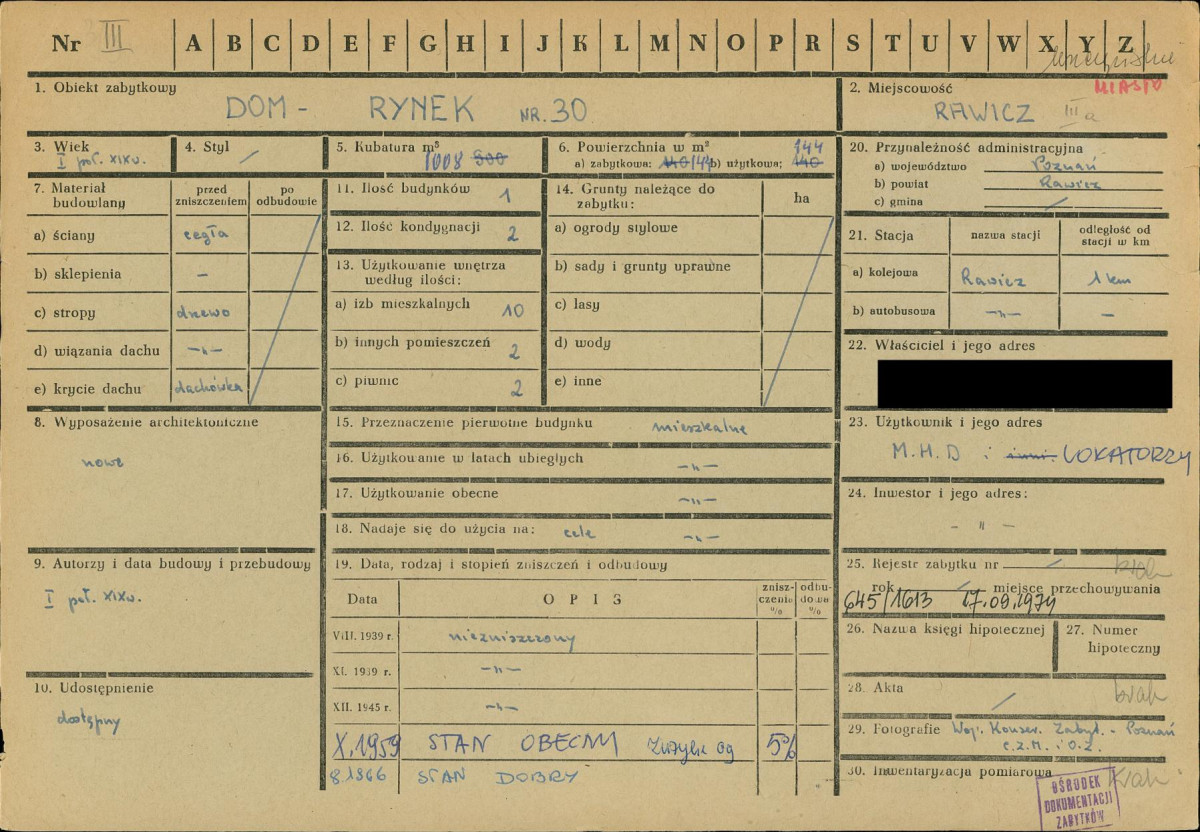 Nr III A B C D E F G H I J K L M N O P R S T U V W X Y Z
1. Obiekt zabytkowy
DOM - RYNEK NR. 30
2. Miejscowość
MIASTO
RAWICZ III a
3. Wiek
I poł. XIX w.
4. Styl
/
5. Kubatura m³
1008 900
6. Powierzchnia w m²
a) zabytkowa: 140 144 b) użytkowa: 140 144
20. Przynależność administracyjna
a) województwo Poznań
b) powiat Rawicz
c) gmina /
7. Materiał budowlany
przed zniszczeniem
po odbudowie
a) ściany cegła
b) sklepienia —
c) stropy drzewo
d) wiązania dachu —„—
e) krycie dachu dachówka
11. Ilość budynków 1
12. Ilość kondygnacji 2
13. Użytkowanie wnętrza
według ilości:
a) izb mieszkalnych 10
b) innych pomieszczeń 2
c) piwnic 2
14. Grunty należące do
zabytku:
ha
a) ogrody stylowe
b) sady i grunty uprawne
c) lasy
d) wody
e) inne
21. Stacja
nazwa stacji
odległość od
stacji w km
a) kolejowa Rawicz 1 km
b) autobusowa —„— —
22. Właściciel i jego adres
8. Wyposażenie architektoniczne
nowe
15. Przeznaczenie pierwotne budynku mieszkalne
16. Użytkowanie w latach ubiegłych —„—
17. Użytkowanie obecne —„—
18. Nadaje się do użycia na: cele —„—
23. Użytkownik i jego adres
M.H.D i inni. LOKATORZY
24. Inwestor i jego adres:
— „ —
9. Autorzy i data budowy i przebudowy
I poł. XIX w.
10. Udostępnienie
dostępny
19. Data, rodzaj i stopień zniszczeń i odbudowy
Data
OPIS
znisz-
czenie
%
odbu-
dowa
%
VIII. 1939 r. niezniszczony
XI. 1939 r. —„—
XII. 1945 r. —„—
X. 1959 STAN OBECNY 5%
8.1966 STAN DOBRY
25. Rejestr zabytku nr / brak
rok / miejsce przechowywania
645/1613 17.09.1974
26. Nazwa księgi hipotecznej
27. Numer
hipoteczny
28. Akta / brak
29. Fotografie Woj. Konser. Zabyt. - Poznań
C.Z.M. i O.Z.
30. Inwentaryzacja pomiarowa brak
OŚRODEK
DOKUMENTACJI
ZABYTKÓW